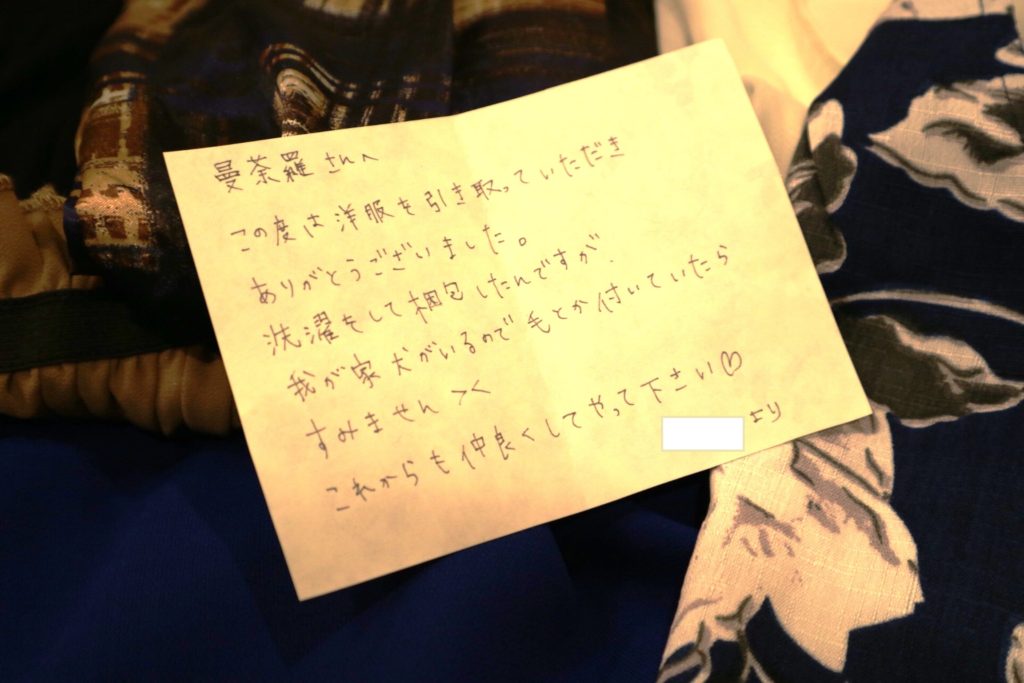 曼荼羅さんへ
この度は洋服を引き取っていただき
ありがとうございました。
洗濯をして梱包したんですが、
我が家犬がいるので毛とか付いていたら
すみません ><
これからも仲良くしてやって下さい♡
より